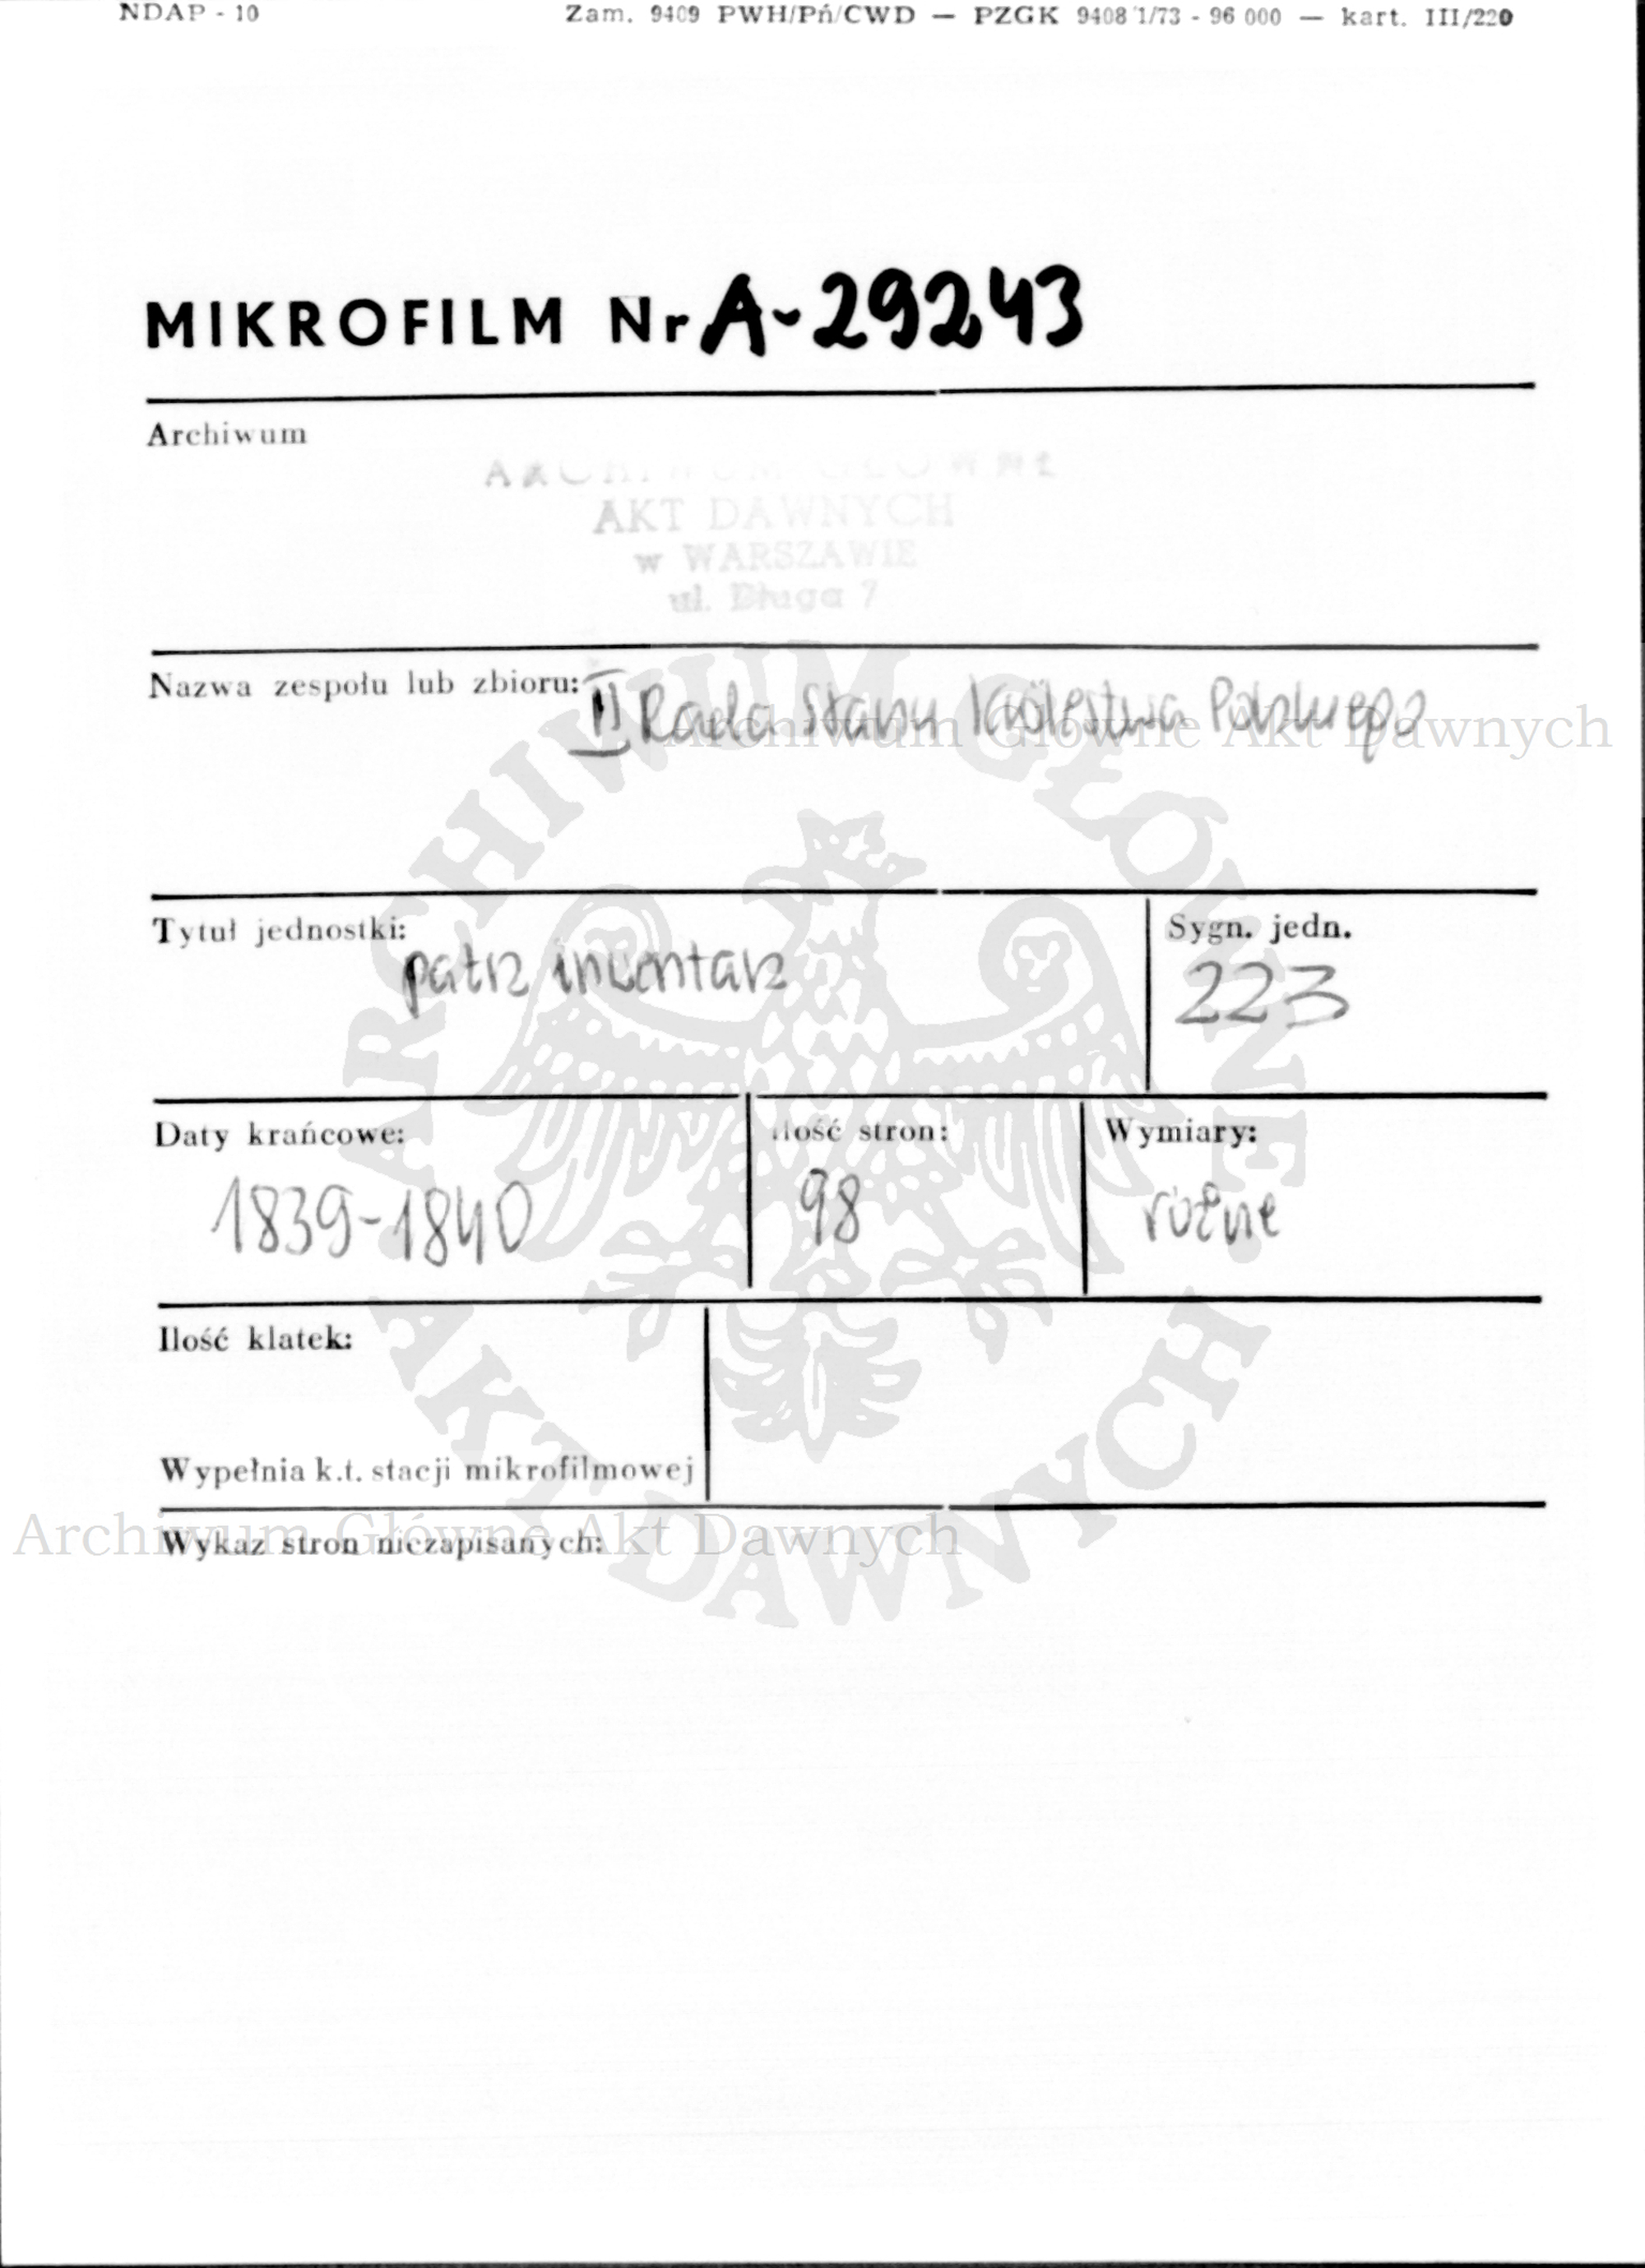 NDAP - 10
Zam. 9409 PWH/Pń/CWD — PZGK 9408 1/73 - 96 000 — kart. III/220
MIKROFILM Nr A-29243
Archiwum
ARCHIWUM GŁÓWNE
AKT DAWNYCH
w WARSZAWIE
ul. Długa 7
Nazwa zespołu lub zbioru: II Rada Stanu Królestwa Polskiego
Archiwum Główne Akt Dawnych
ARCHIWUM GŁÓWNE
Tytuł jednostki: patrz inwentarz
Sygn. jedn.
223
Daty krańcowe:
1839-1840
Ilość stron:
98
Wymiary:
różne
Ilość klatek:
Wypełnia k.t. stacji mikrofilmowej
AKT DAWNYCH
Archiwum Główne Akt Dawnych
Wykaz stron niezapisanych: